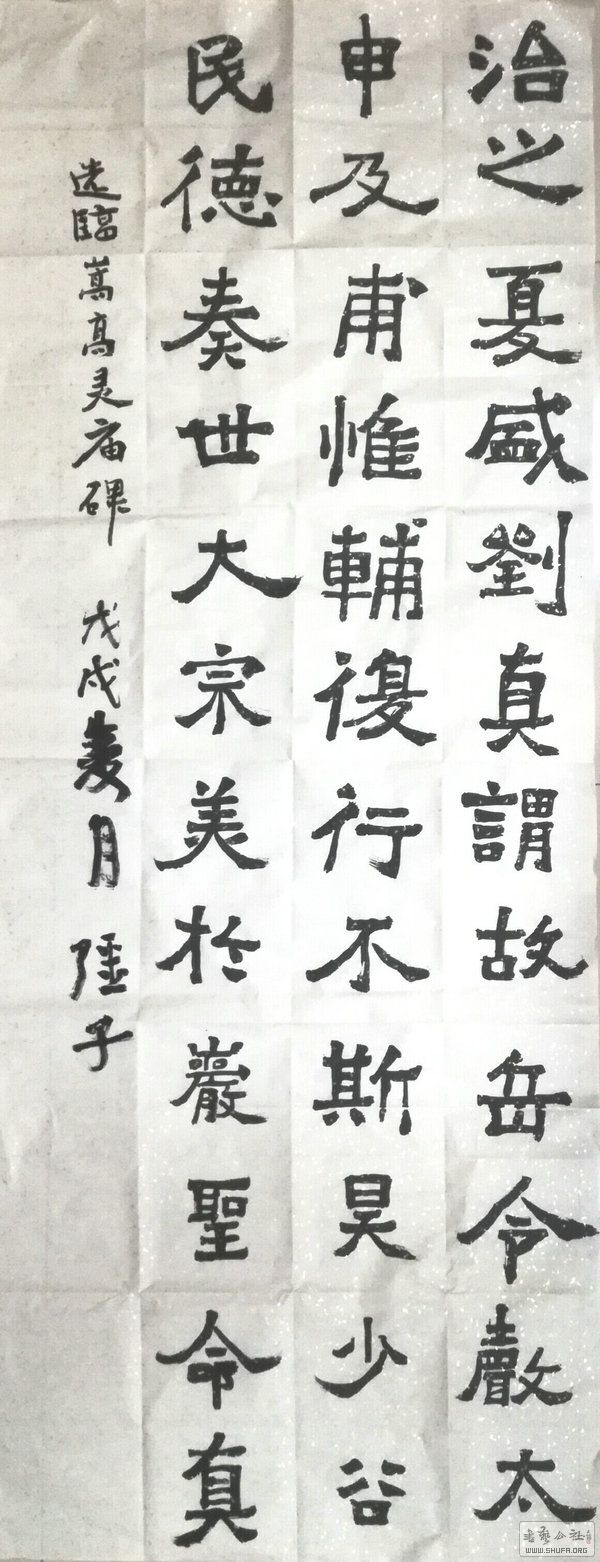 治之夏盛劉真謂故岳令聲太
申及甫惟輔復行不斯昊少公
民德奏世大宗美於巖聖命真
选臨嵩高灵庙碑 戊戌夏月 子
WWW.SHUFA.ORG